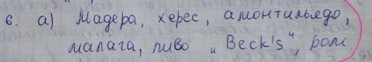 6. а) Мадера, херес, амонтильядо,
малага, пиво „Beck's“, ром